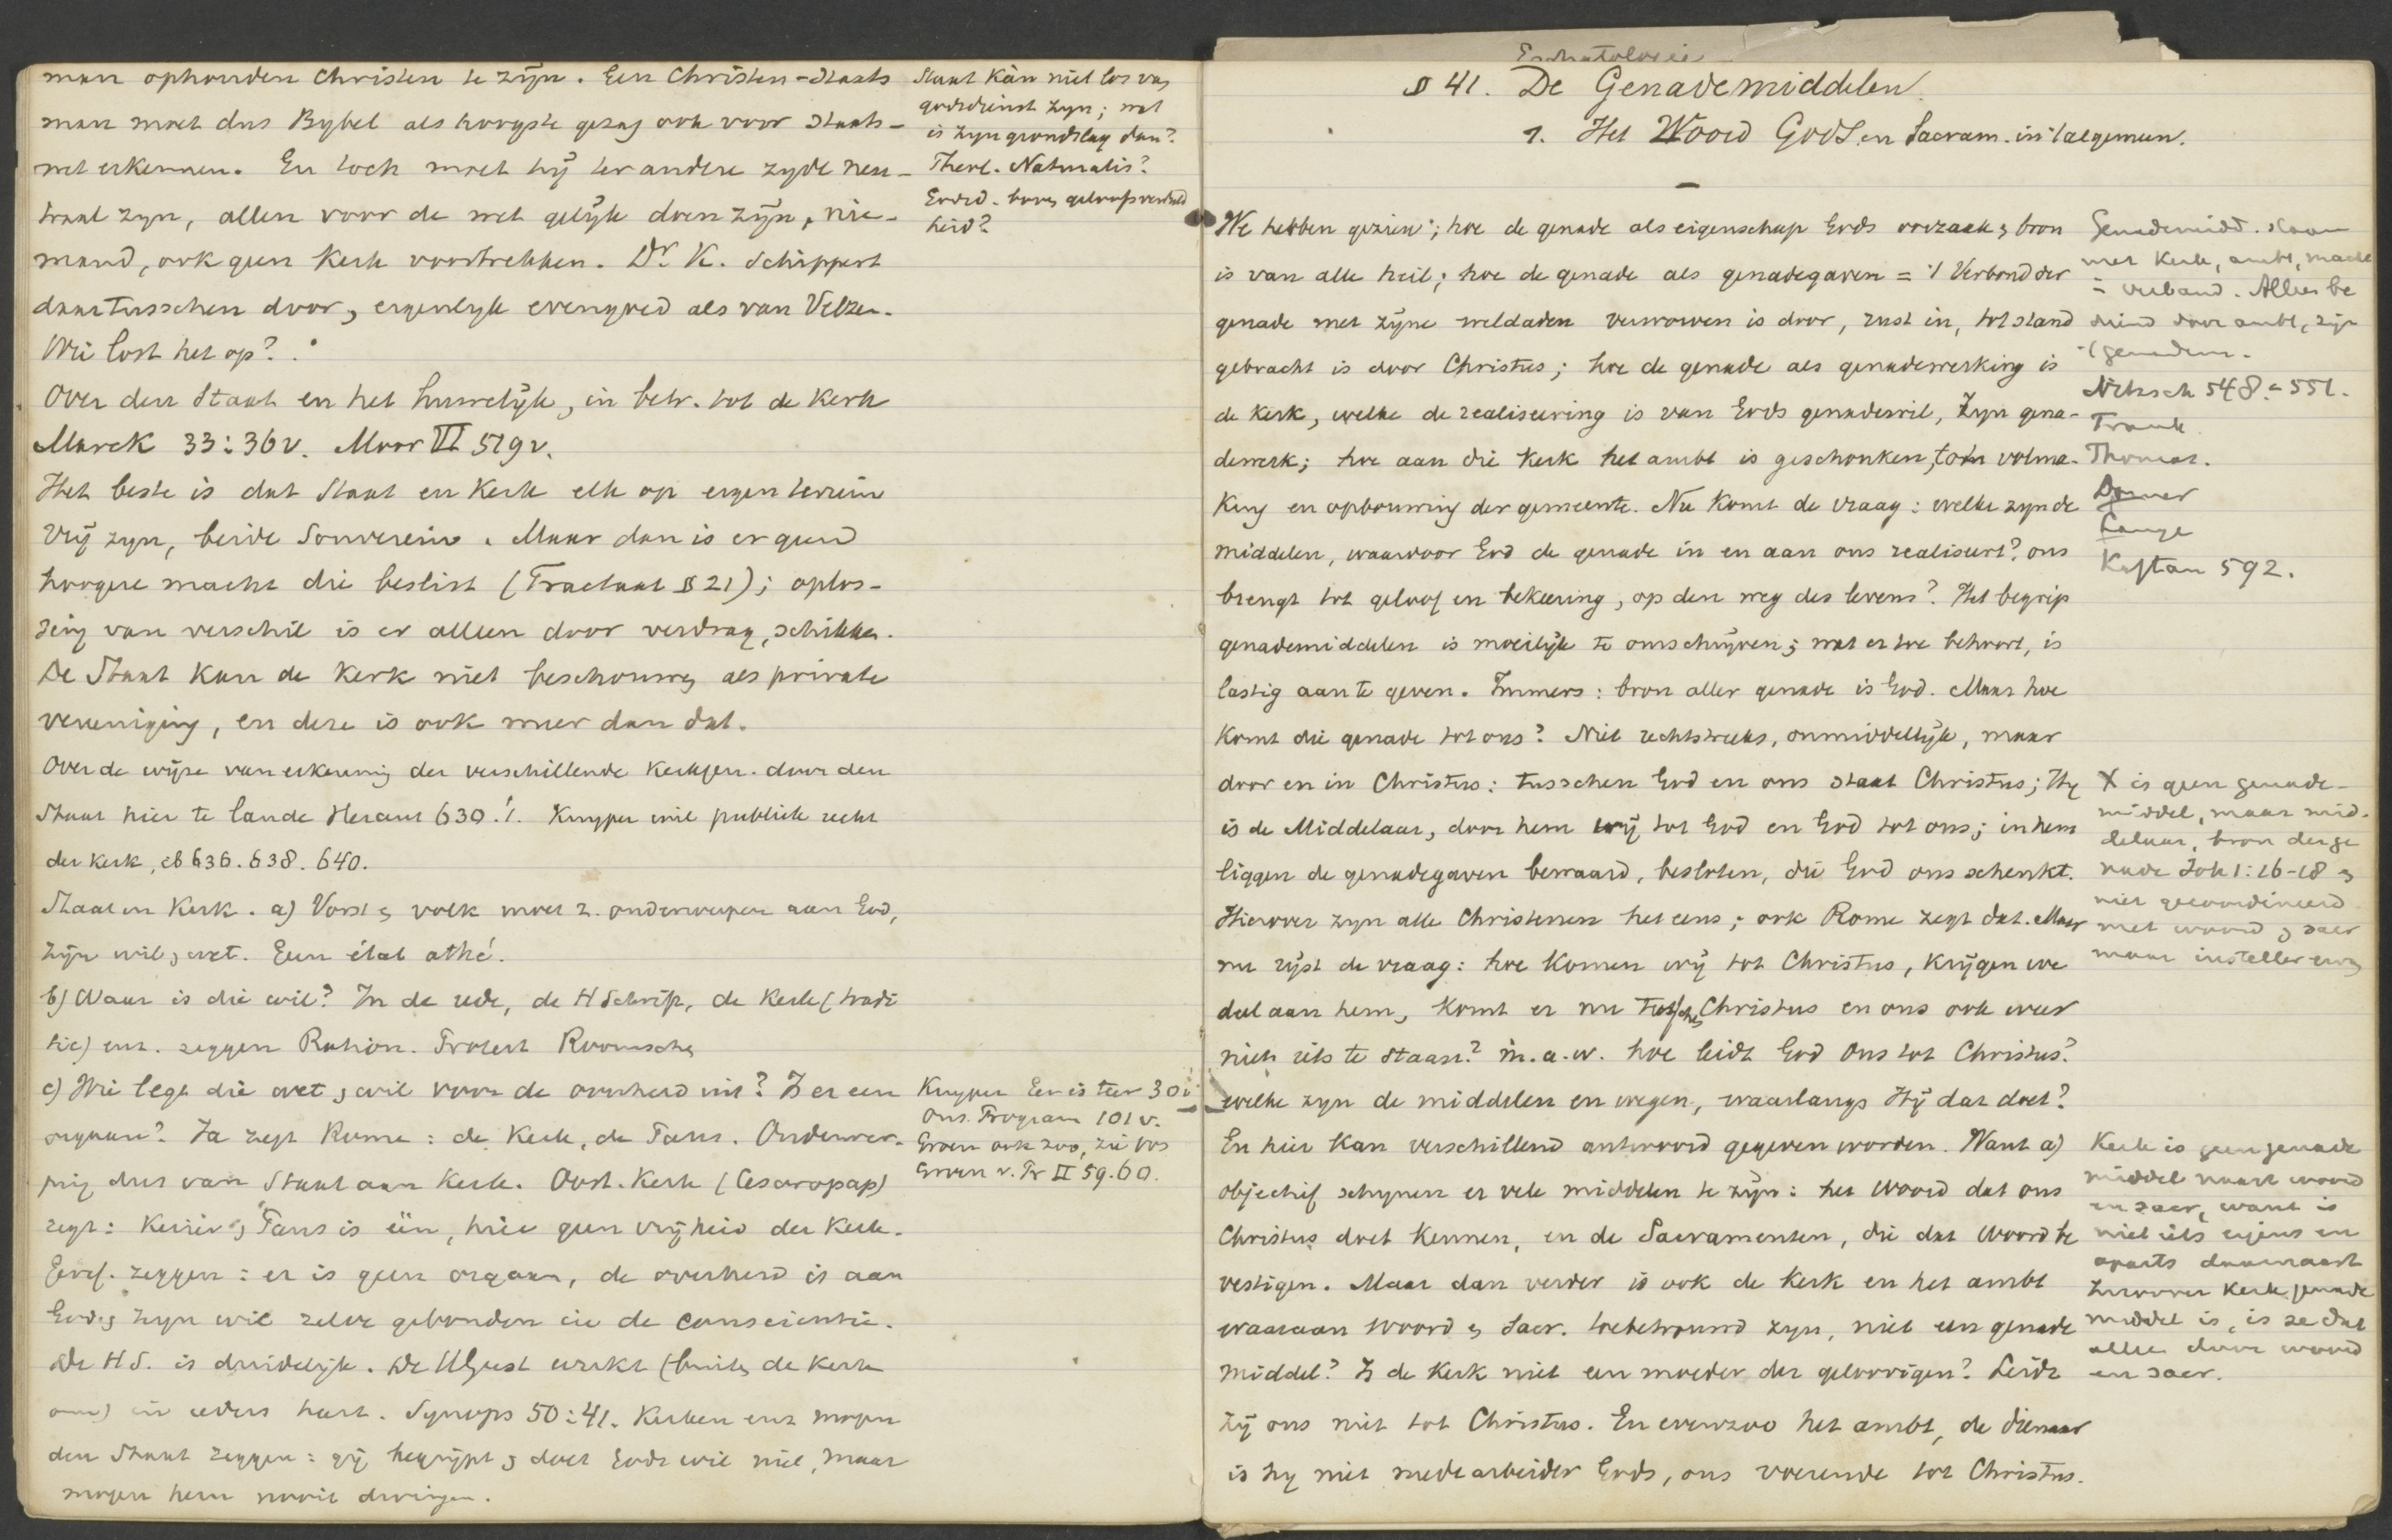 man ophouden Christen te zijn. Een Christen-staats
man moet dus Bybel als hoogste gezag ook voor staats-
wet erkennen. En toch moet hij ter andere zyde neu-
traal zyn, allen voor de wet gelijk doen zijn, nie-
mand, ook geen Kerk voortrekken. Dr. K. schippert
daartusschen door, eigenlyk evengoed als van Velzen.
Wie lost het op?
Over den Staat en het huwelijk, in betr. tot de Kerk
Marck 33:36v. Moor VI 519v.
Het beste is dat Staat en Kerk elk op eigen terrein
vrij zyn, beide Souverein. Maar dan is er geen
hoogere macht die beslist (Tractaat § 21); oplos-
sing van verschil is er alleen door verdrag, schikken.
De Staat kan de Kerk niet beschouwen als private
vereeniging, en deze is ook meer dan dat.
Over de wijze van erkenning der verschillende Kerkgen. door den
Staat hier te lande Heraut 630. Kuyper wil publiek recht
der Kerk, ib 636. 638. 640.
Staat en Kerk. a) Vorst & volk moet z. onderwerpen aan God,
zijn wil & wet. Geen état athé.
b) Waar is die wil? In de rede, de H Schrift, de Kerk (tradi
tie) enz. zeggen Ration. Protest Roomschen
c) Wie legt die wet & wil voor de overheid uit? Is er een
orgaan? Ja zegt Rome: de Kerk, de Paus. Onderwer-
ping dus van Staat aan Kerk. Oost. Kerk (Cesaropap)
zegt: Keizer & Paus is één, hier geen vrijheid der Kerk.
Geref. zeggen: er is geen orgaan, de overheid is aan
Gods zyn wil zelve gebonden in de conscientie.
De H S. is duidelijk. De H Geest werkt (buiten de Kerk
om) in ieders hart. Synops 50:41. Kerken enz mogen
den Staat zeggen: gij begrijpt & doet Gods wil niet, maar
mogen hem nooit dwingen.
Staat kàn niet los van
godsdienst zyn; wat
is zyn grondslag dan?
Theol. Naturalis?
Godsd. boven geloofsverdeeld
heid?
Kuyper Eer is teer 30v
Ons Program 101v.
Groen ook zoo, zie Vos
Groen v. Pr II 59.60.
Eschatologie
§ 41. De Genademiddelen.
1. Het Woord Gods en Sacram. in 't algemeen.
We hebben gezien; hoe de genade als eigenschap Gods oorzaak & bron
is van alle heil; hoe de genade als genadegaven = 't Verbond der
genade met zijne weldaden verworven is door, rust in, tot stand
gebracht is door Christus; hoe de genade als genadewerking is
de Kerk, welke de realiseering is van Gods genadewil, Zyn gena-
dewerk; hoe aan die Kerk het ambt is geschonken, tot volma-
king en opbouwing der gemeente. Nu komt de vraag: welke zyn de
middelen, waardoor God de genade in en aan ons realiseert? ons
brengt tot geloof en bekeering, op den weg des levens? Het begrip
genademiddelen is moeilijk te omschrijven; wat er toe behoort, is
lastig aan te geven. Immers: bron aller genade is God. Maar hoe
komt die genade tot ons? Niet rechtstreeks, onmiddellijk, maar
door en in Christus: tusschen God en ons staat Christus; Hy
is de Middelaar, door hem wij tot God en God tot ons; in hem
liggen de genadegaven bewaard, besloten, die God ons schenkt.
Hierover zyn alle Christenen het eens; ook Rome zegt dat. Maar
nu rijst de vraag: hoe komen wij tot Christus, krijgen we
deel aan hem, komt er nu tusschen Christus en ons ook weer
niets iets te staan? m.a.w. hoe leidt God ons tot Christus?
welke zyn de middelen en wegen, waarlangs Hij dat doet?
En hier kan verschillend antwoord gegeven worden. Want a)
objectief schynen er vele middelen te zijn: het Woord dat ons
Christus doet kennen, en de Sacramenten, die dat Woord be
vestigen. Maar dan verder is ook de Kerk en het ambt
waaraan Woord & Sacr. toebetrouwd zyn, niet een genade
middel? Is de Kerk niet een moeder der geloovigen? Leidt
zij ons niet tot Christus. En evenzoo het ambt, de dienaar
is hy niet medearbeider Gods, ons voerende tot Christus.
Genademidd. staan
met Kerk, ambt, macht
in verband. Alles be
diend door ambt, zijn
Nitzsch 548-551.
Frank
Thomas.
Dorner
Lange
Kaftan 592.
X is geen genade-
middel, maar mid-
delaar, bron der ge
nade Joh 1:16-18 &
niet gecoordineerd
met woord & sacr
maar insteller ervan
Kerk is geen genade
middel naast woord
en sacr, want is
niet iets eigens en
aparts daarnaast
Zoover Kerk genade
middel is, is ze dat
alleen door woord
en sacr.